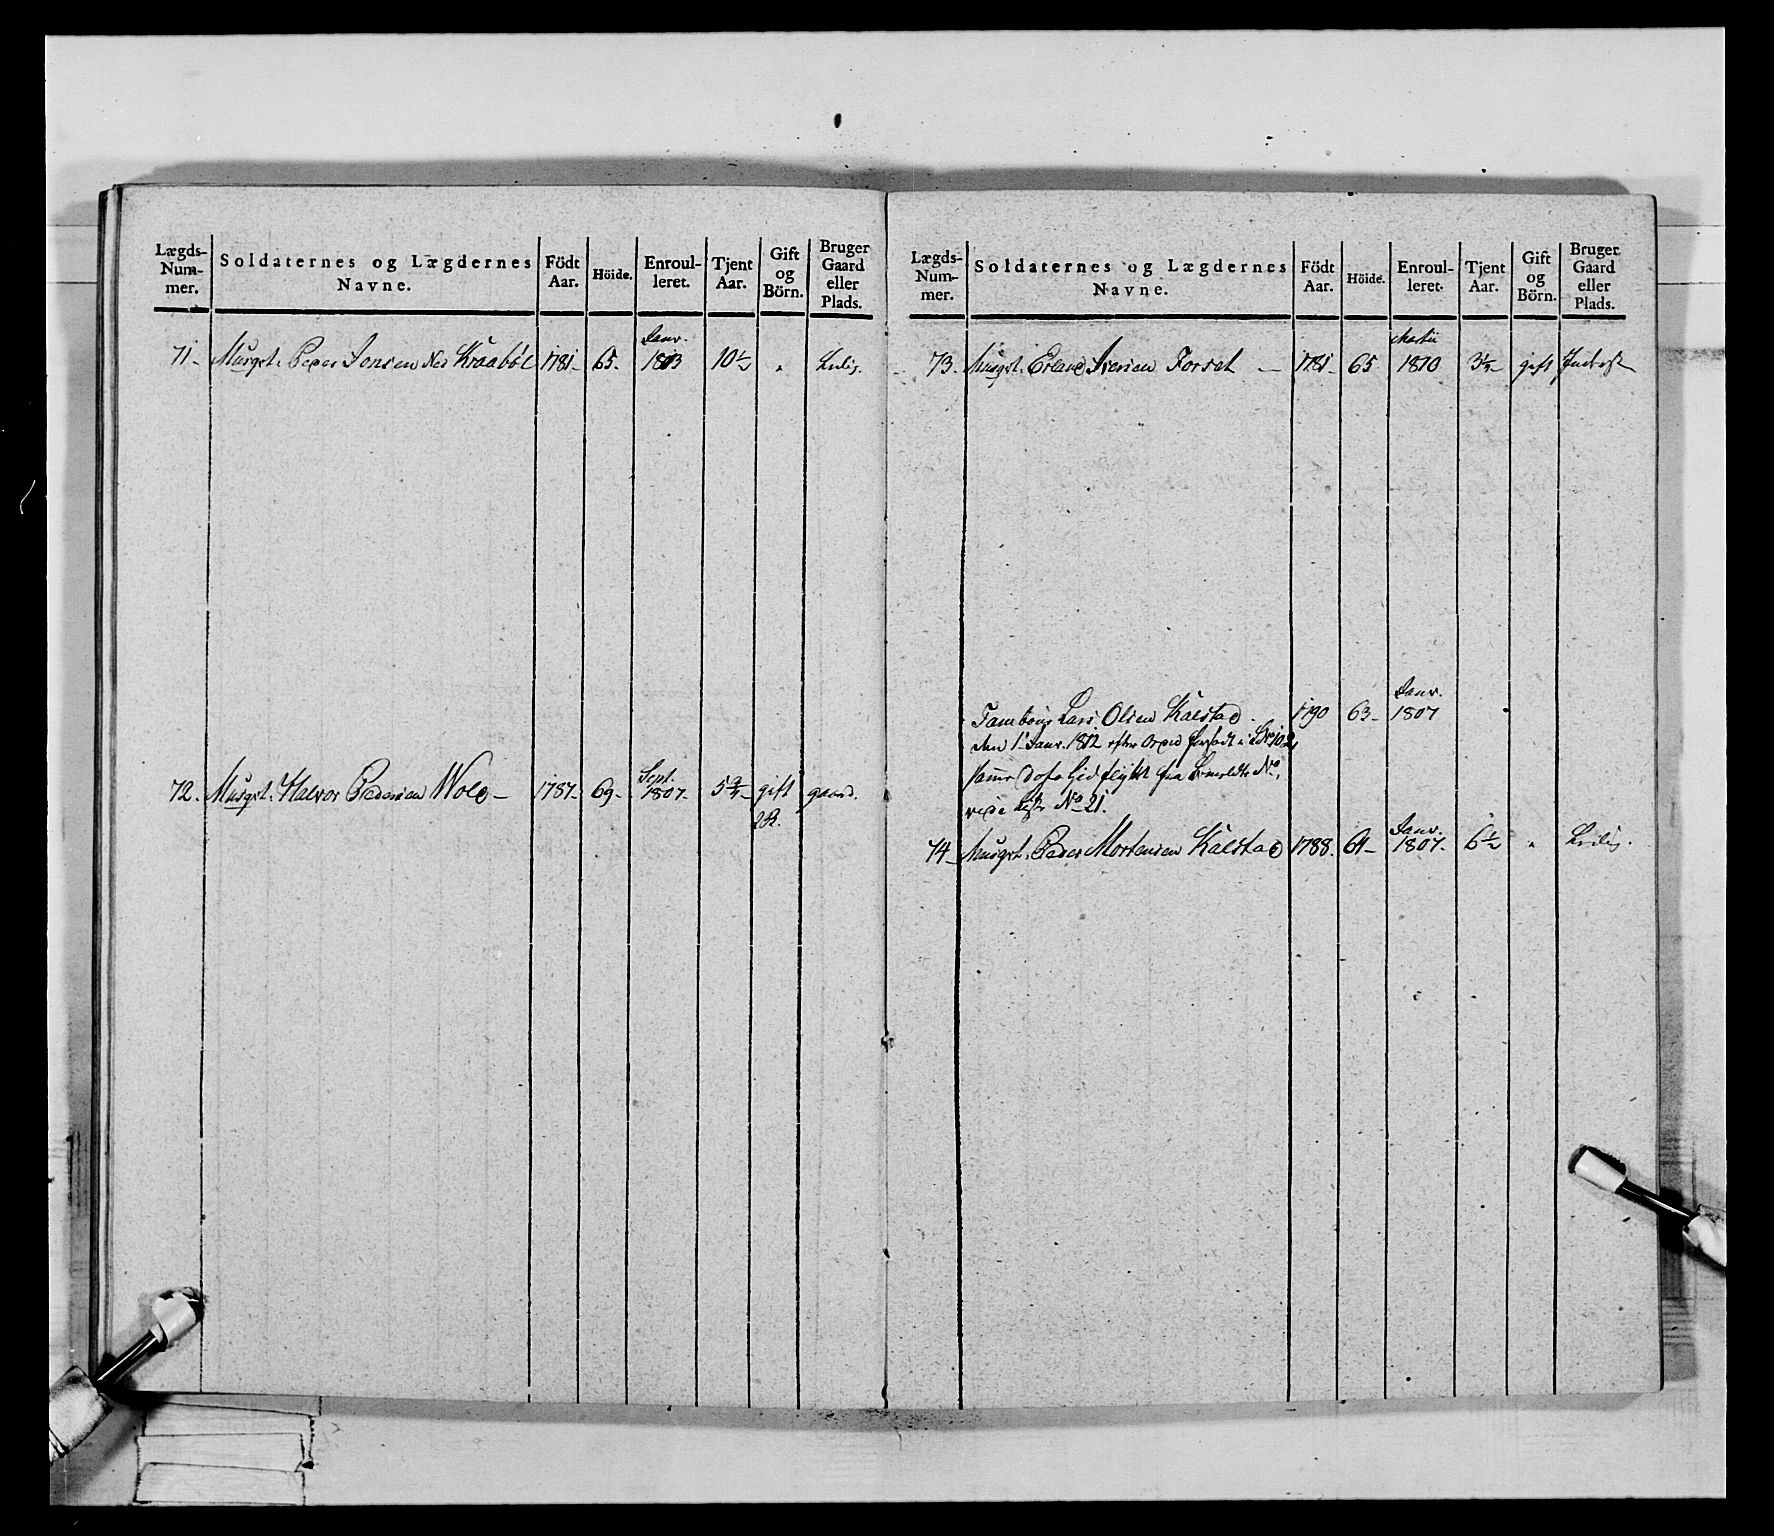 Lægds-Num-mer.
Soldaternes og Lægdernes Navne.
Födt Aar.
Höide.
Enroul-leret.
Tjent Aar.
Gift og Börn.
Bruger Gaard eller Plads.
Janr.
71- Musqt. Peder Jonsen Ned Kraabøl 1781- 65. 1803 10½ " Ledig.
Sept.
72. Musqt. Halvor Pedersen Wold- 1787- 69- 1807- 5¾- gift gaard.
2 B.
Lægds-Num-mer.
Soldaternes og Lægdernes Navne.
Födt Aar.
Höide.
Enroul-leret.
Tjent Aar.
Gift og Börn.
Bruger Gaard eller Plads.
Martii
73. Musqt. Erland Iversen Forset - 1781- 65 1810 3¼- gift Inderst
Janr.
Tambour Lars Olsen Kalstad. 1790 63- 1807
den 1te Janr. 1812 efter Ordre forsadt i LdNo 102,
samme Dato hid flyttet fra No,
vide Liste No 21.
Janr.
74- Musqt. Peder Mortensen Kalstad 1788. 64- 1807. 6½ " Ledig.